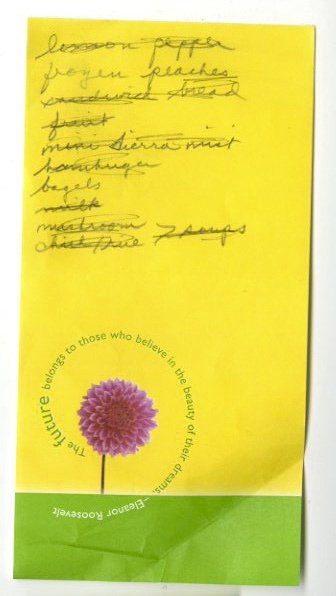 lemon pepper
frozen peaches
sandwich bread
fruit
mini Sierra mist
hamburger
bagels
milk
mushroom
chick/rice > soups
The future belongs to those who believe in the beauty of their dreams. —Eleanor Roosevelt